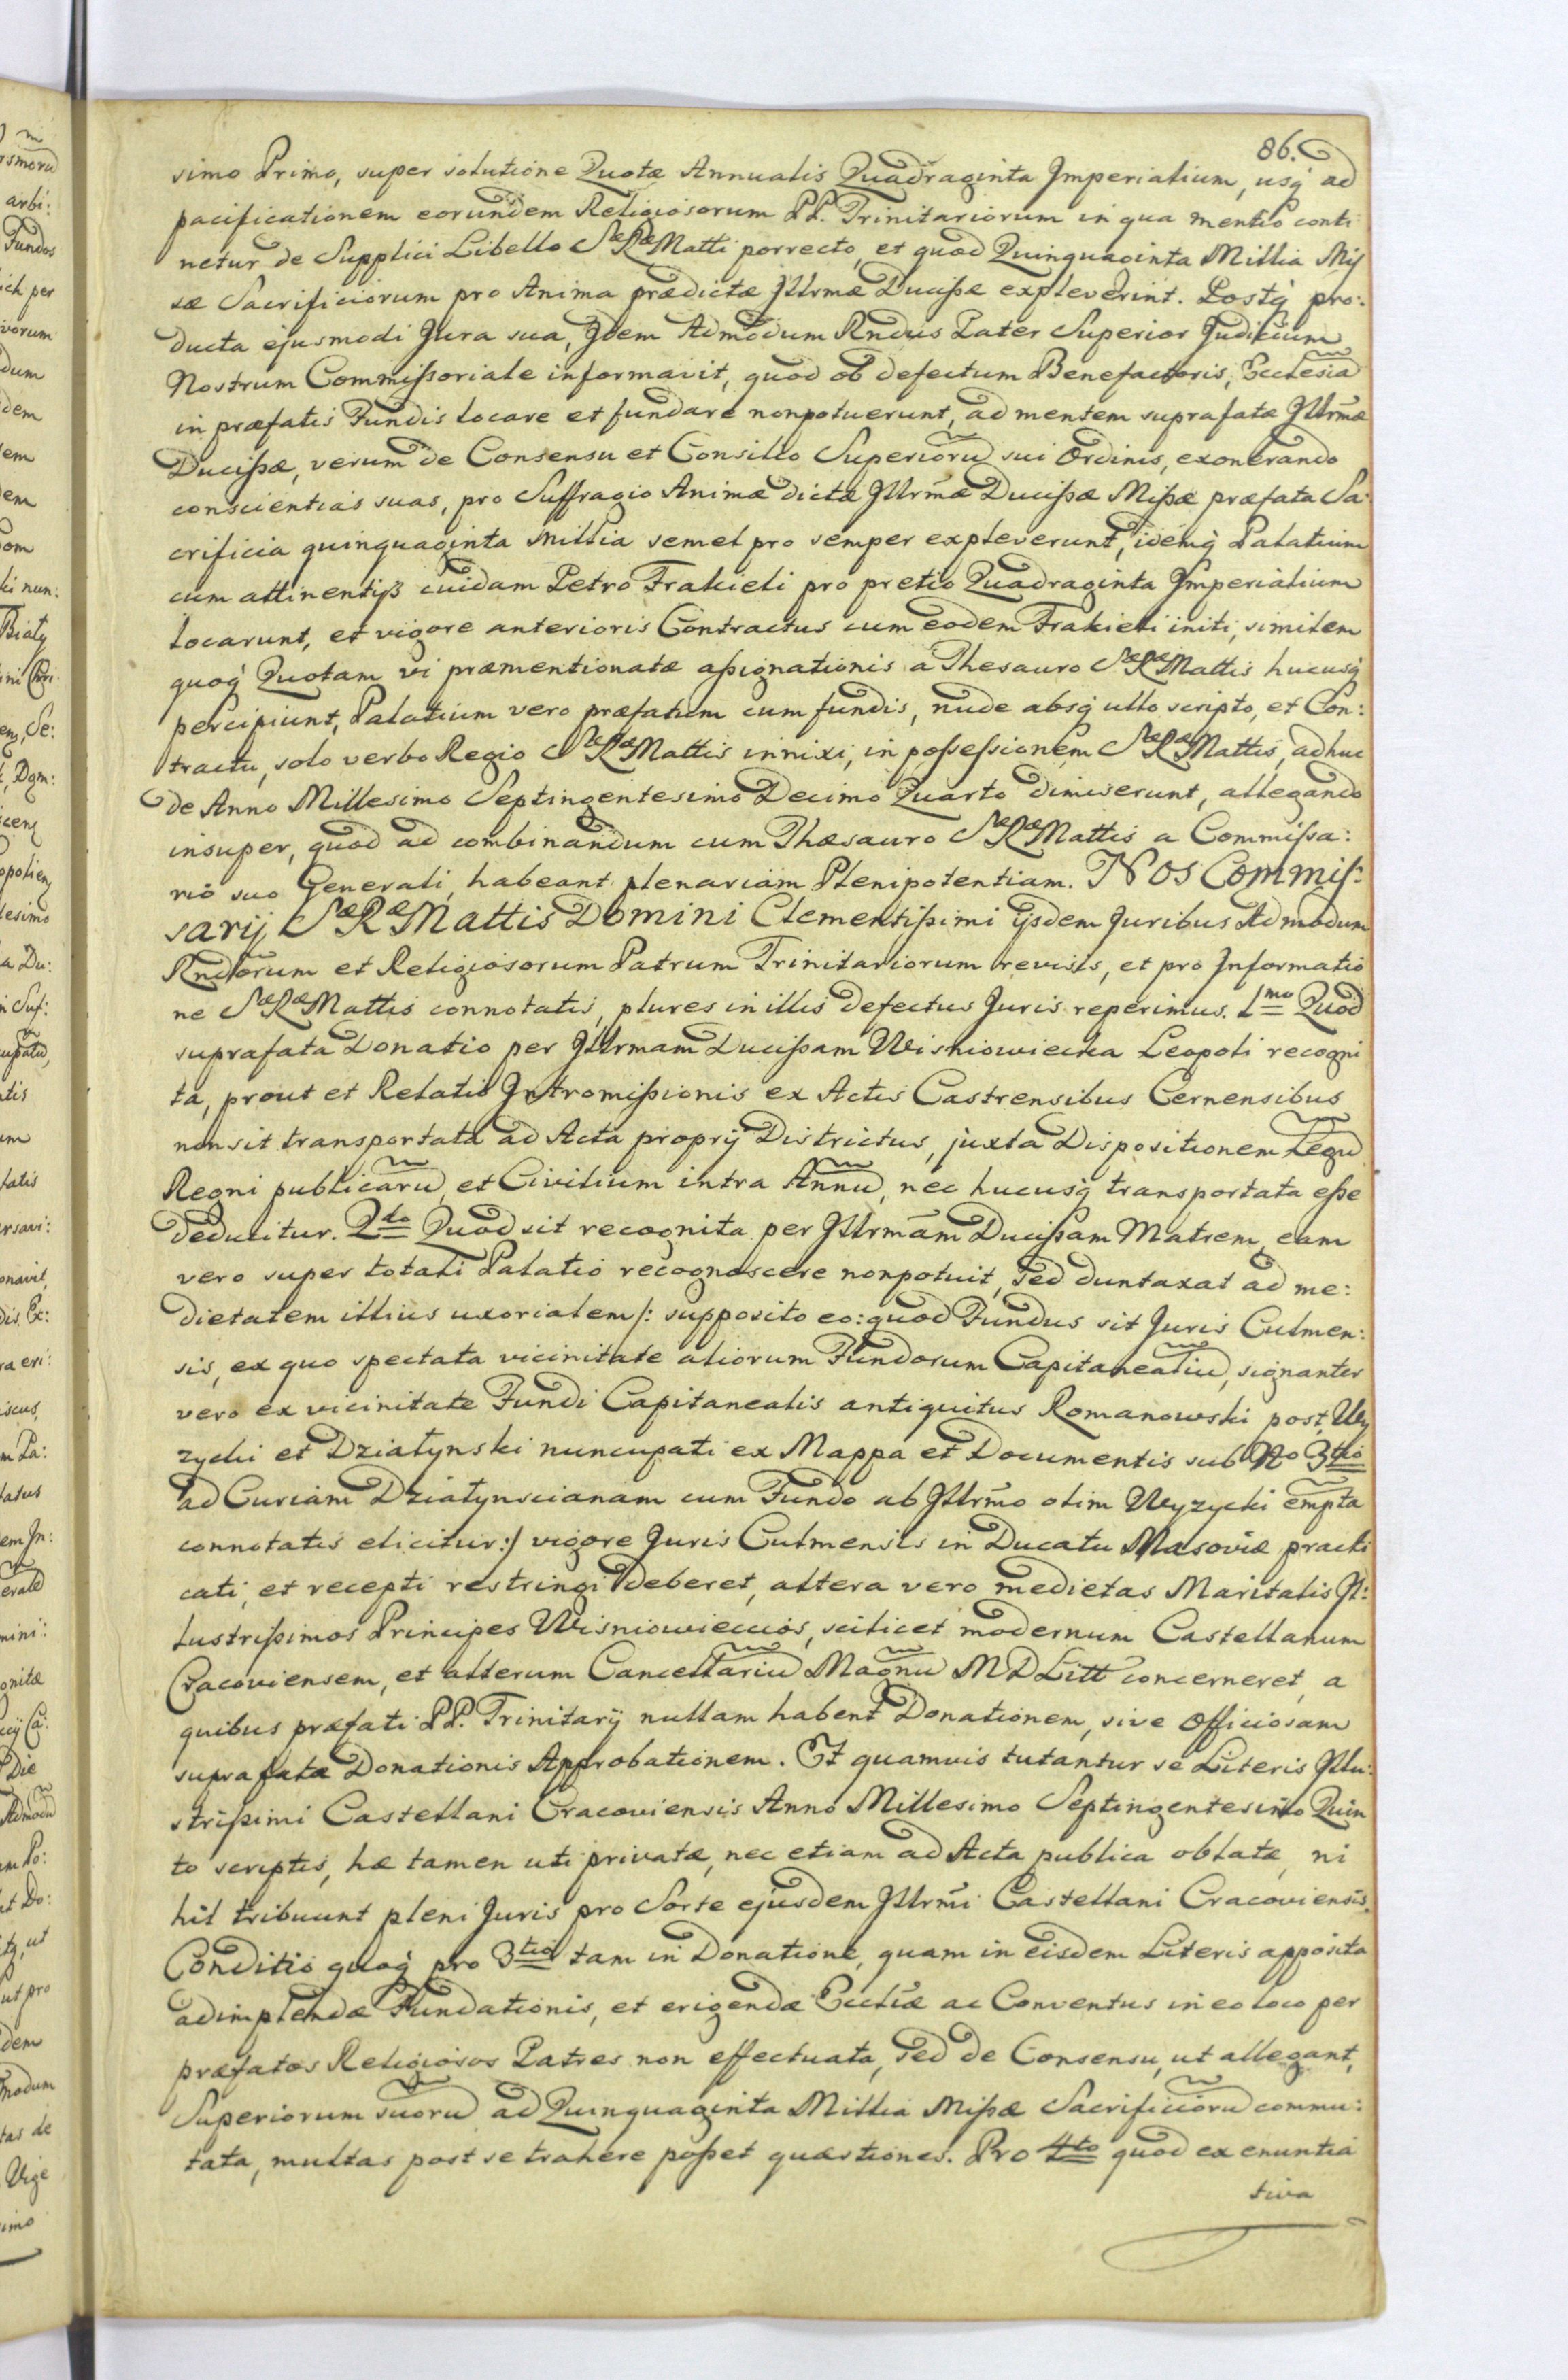 86.
simo Primo, super solutione Quotæ Annualis Quadraginta Imperialium, usq̀ ad
pacificationem eorundem Religiosorum PP. Trinitariorum in qua mentio conti
netur de Supplici Libello SæRæMatti porrecto, et quod Quinquaginta Millia Mis
sæ Sacrificiorum pro Anima prædictæ Jllrmæ Ducißæ expleverint. Postq̀ pro:
ducta ejusmodi Jura sua, Jdem Admodum Rndus Pater Superior Judicium
Nostrum Commißoriale informavit, quod ob defectum Benefactoris, Ecclesia
in præfatis Fundis locare et fundare nonpotuerunt, ad mentem suprafatæ Jllrm̃æ
Ducißæ, verum de Consensu et Consilio Superiorũ sui Ordinis, exonerando
conscientias suas, pro Suffragio Animæ dictæ Jllrm̃æ Ducißæ Mißæ præfata Sa:
crificia quinquaginta millia semel pro semper expleverunt, idemq̀ Palatium
cum attinentijß cuidam Petro Frakieli pro pretio Quadraginta Jmperialium
locarunt, et vigore anterioris Contractus cum eodem Frakieli initi, similem
quoq̀ Quotam vi præmentionatæ aßignationis a Thesauro SæRæMattis hucusq̀
percipiunt, Palatium vero præfatum cum fundis, nude absq̀ ullo scripto, et Con:
tractu, solo verbo Regio SæRæMattis innixi, in poßeßionem SæRæMattis, adhuc
de Anno Millesimo Septingentesimo Decimo Quarto dimiserunt, allegando
insuper, quod ad combinandum cum Thæsauro SæRæMattis a Commißa:
rio suo Generali, habeant plenariam Plenipotentiam. NOS Commiß:
sarij SæRæMattis Domini Clementißimi ijsdem Juribus Admodum
Rndorum et Religiosorum Patrum Trinitariorum revisis, et pro Jnformatio
ne SæRæMattis connotatis, plures in illis defectus Juris reperimus. 1mo Quod
suprafata Donatio per Jllrmam Ducißam Wisniowiecka Leopoli recogni
ta, prout et Relatio Jntromißionis ex Actis Castrensibus Cernensibus
non sit transportata ad Acta proprij Districtus, juxta Dispositionem Legũ
Regni publicarũ et Civilium intra Annũ, nec hucusq̀ transportata eße
deducitur. 2do Quod sit recognita per Jllrmãm Ducißam Matrem, eam
vero super totali Palatio recognoscere nonpotuit, sed duntaxat ad me:
dietatem illius uxorialem /: supposito eo: quod Fundus sit Juris Culmen:
sis, ex quo spectata vicinitate aliorum Fundorum Capitanealiũ, signanter
vero ex vicinitate Fundi Capitanealis antiquitus Romanowski post, Wy
zycki et Dziatynski nuncupati ex Mappa et Documentis sub No 3tio
ad Curiam Dziatynscianam cum Fundo ab Jllrm̃o olim Wyzycki empta
connotatis elicitur :/ vigore Juris Culmensis in Ducatu Masoviæ practi
cati, et recepti restringi deberet, altera vero medietas Maritalis Jl:
lustrißimos Principes Wisniowieccios, scilicet modernum Castellanum
Cracoviensem, et alterum Cancellariũ Magnũ MDLitt concerneret, a
quibus præfati PP. Trinitarij nullam habent Donationem, sive Officiosam
suprafatæ Donationis Approbationem. Et quamvis tutantur se Literis Jllu:
strißimi Castellani Cracoviensis Anno Millesimo Septingentesimo Quin
to scriptis, hæ tamen uti privatæ, nec etiam ad Acta publica oblatæ, ni
hil tribuunt pleni Juris pro Sorte ejusdem Jllrm̃i Castellani Cracoviensis.
Conditio quoq̀ pro 3tio tam in Donatione, quam in eisdem Literis apposita
adimplendæ Fundationis, et erigendæ Eccliæ ac Conventus in eo loco per
præfatos Religiosos Patres non effectuata, sed de Consensu, ut allegant,
Superiorum suorũ ad Quinquaginta Millia Mißæ Sacrificiorũ commu:
tata, multas post se trahere poßet quæstiones. Pro 4to quod ex enuntia
tiva